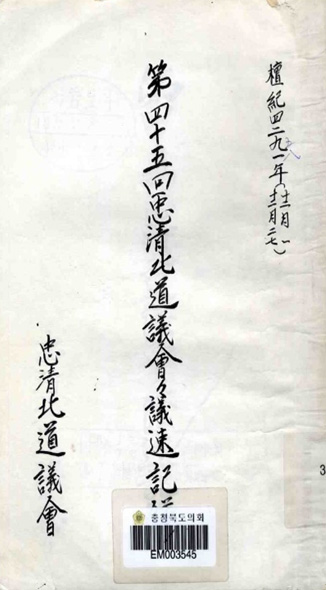 檀紀四二九一年(十二月
十二月二七)
第四十五回忠清北道議會々議速記
忠清北道議會
충청북도의회
EM003545
3